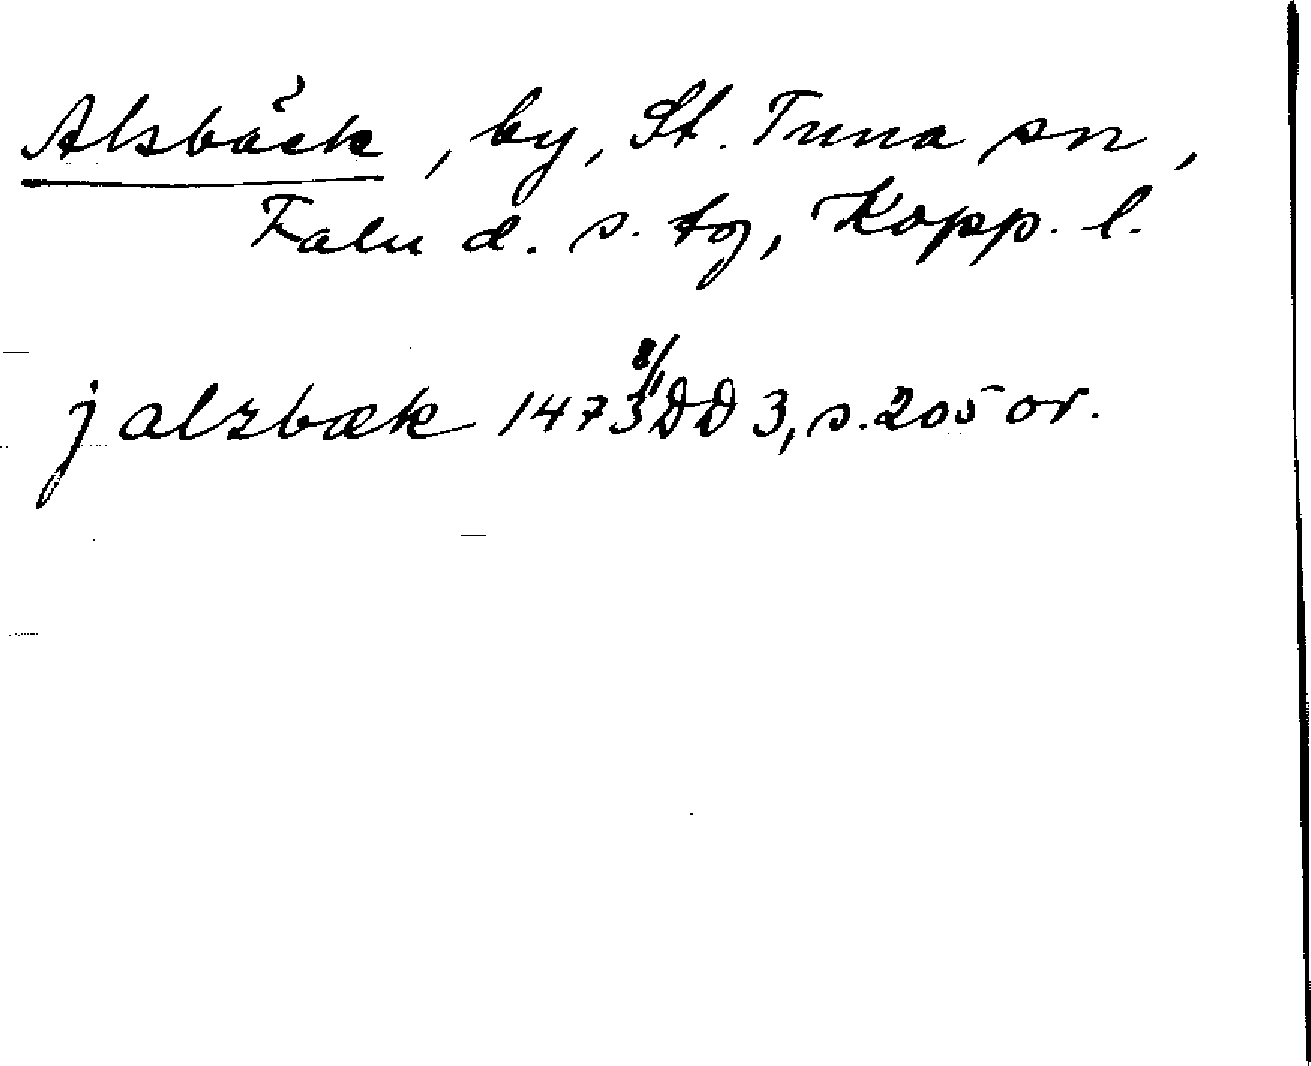 Alsbäck, by, St. Tuna sn,
Falu d. s. tg, Kopp. l.
j alzbæk 1473 8/11 DD 3, s. 205 or.